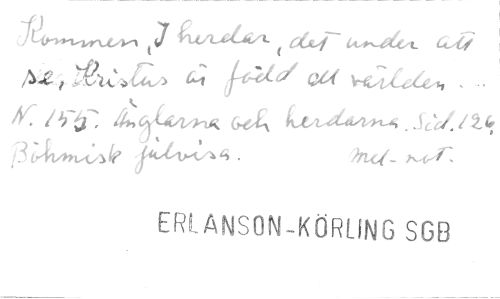 Kommen, I herdar, det under att
se, Kristus är född åt världen...
N. 155. Änglarna och herdarna. Sid. 126.
Böhmisk julvisa. mel. not.
ERLANSON-KÖRLING SGB